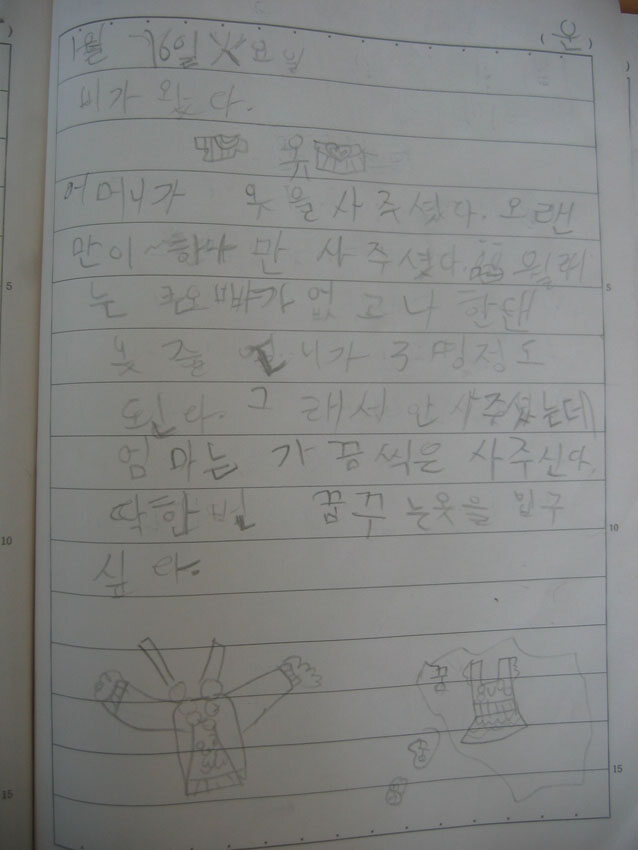 (운)
1월 19일 火요일
비가 왔다.
옷
어머니가 옷을 사주셨다. 오랜
만이 하나만 사주셨다. 원래
는 없고 나한텐
옷 줄 언니가 3명정도
된다. 그래서 안 사주셨는데
엄마는 가끔씩은 사주신다.
딱 한번 꿈꾸는옷을 입구
싶다.
꿈
5
10
15
5
10
15